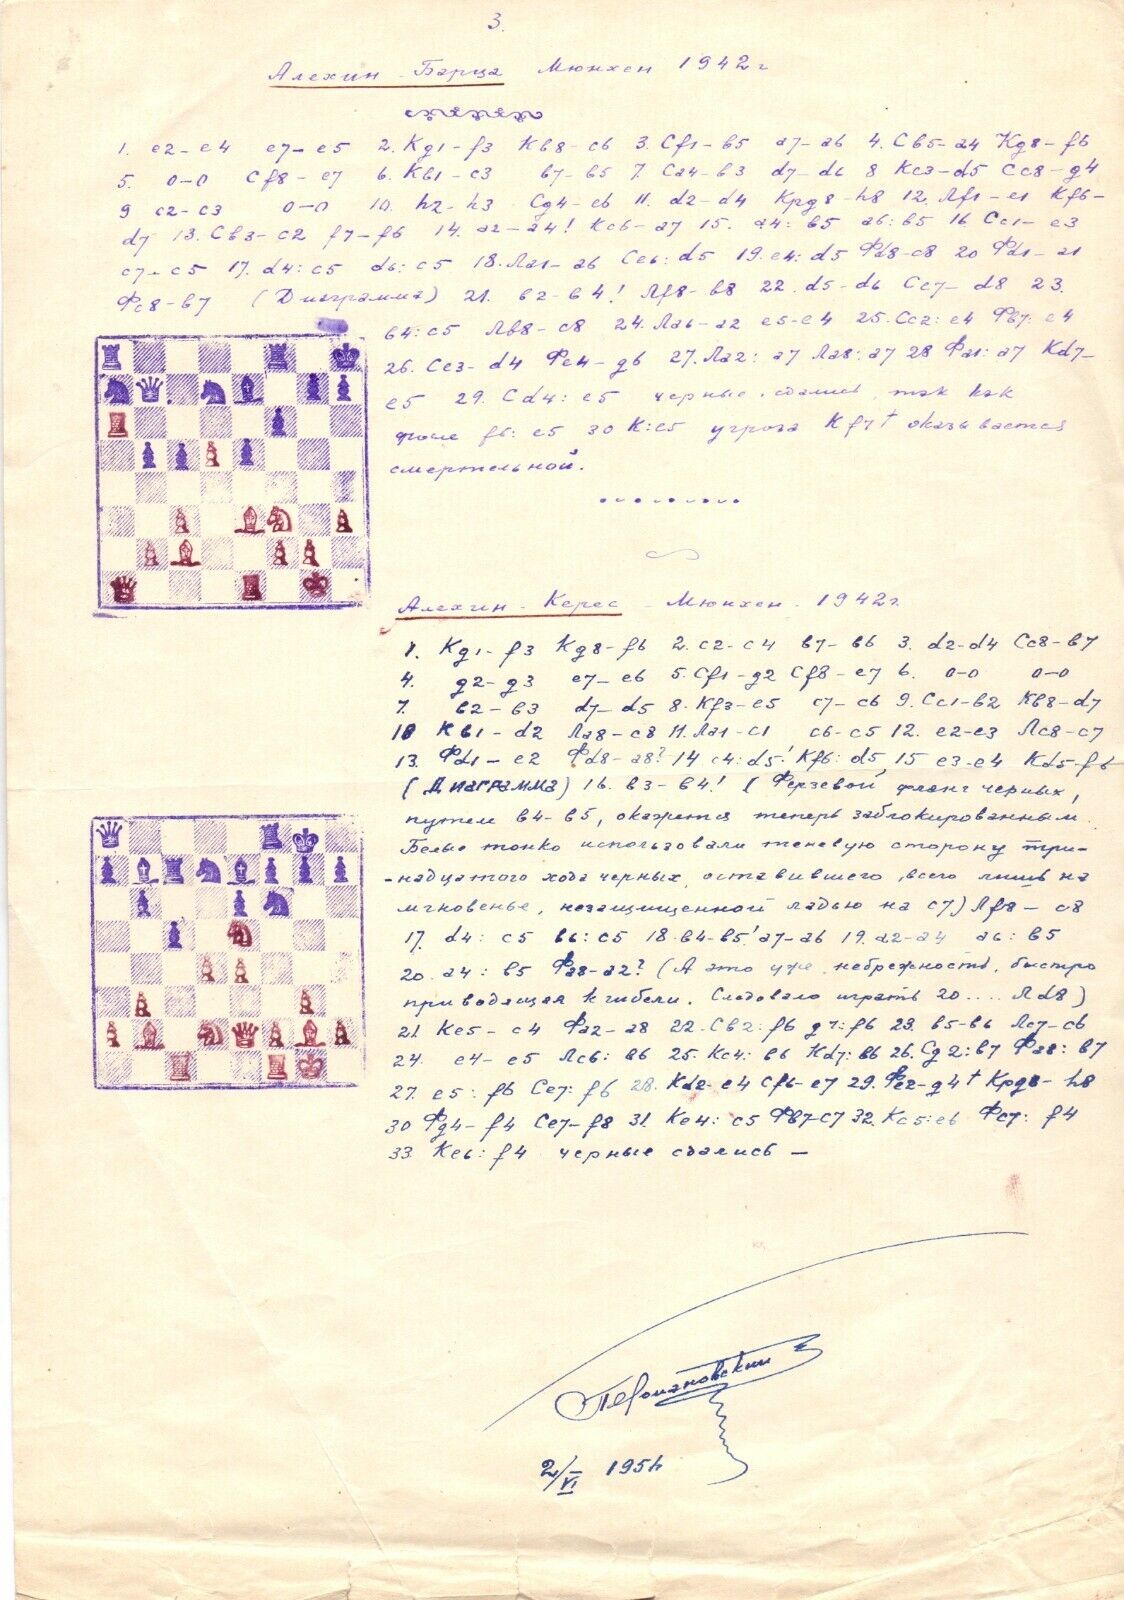 3.
Алехин - Барца Мюнхен 1942 г
1. e2-e4 e7-e5 2. Kg1-f3 Kв8-c6 3. Cf1-в5 a7-a6 4. Cв5-a4 Kg8-f6
5. 0-0 Cf8-e7 6. Kв1-c3 в7-в5 7. Ca4-в3 d7-d6 8 Kc3-d5 Cc8-g4
9 c2-c3 0-0 10. h2-h3 Cg4-e6 11. d2-d4 Kpg8-h8 12. Лf1-e1 Kf6-
d7 13. Cв3-c2 f7-f6 14. a2-a4! Kc6-a7 15. a4:в5 a6:в5 16 Cc1-e3
c7-c5 17. d4:c5 d6:c5 18. Ла1-a6 Ce6:d5 19. e4:d5 Фd8-c8 20 Фd1-a1
Фc8-в7 (Диаграмма) 21. в2-в4! Лf8-в8 22. d5-d6 Ce7-d8 23.
в4:c5 Лв8-c8 24. Ла6-a2 e5-e4 25. Cc2:e4 Фв7:e4
26. Ce3-d4 Фe4-g6 27. Ла2:a7 Ла8:a7 28 Фa1:a7 Kd7-
e5 29. Cd4:e5 черные сдались, так как
после f6:e5 30 K:e5 угроза Kf7+ оказывается
смертельной.
Алехин - Керес - Мюнхен - 1942 г.
1. Kg1-f3 Kg8-f6 2. c2-c4 в7-в6 3. d2-d4 Cc8-в7
4. g2-g3 e7-e6 5. Cf1-g2 Cf8-e7 6. 0-0 0-0
7. в2-в3 d7-d5 8. Kf3-e5 c7-c6 9. Cc1-в2 Kв8-d7
10 Kв1-d2 Ла8-c8 11. Ла1-c1 c6-c5 12. e2-e3 Лc8-c7
13. Фd1-e2 Фd8-a8? 14 c4:d5! Kf6:d5, 15 e3-e4 Kd5-f6
(Диаграмма) 16. в3-в4! (Ферзевой фланг черных,
путем в4-в5, окажется теперь заблокированным.
Белые тонко использовали теневую сторону три-
-надцатого хода черных, оставившего, всего лишь на
мгновенье, незащищенной ладью на c7) Лf8-c8
17. d4:c5 в6:c5 18. в4-в5! a7-a6 19. a2-a4 a6:в5
20. a4:в5 Фa8-a2? (А это уже небрежность, быстро
приводящая к гибели. Следовало играть 20.... Лd8)
21. Ke5-c4 Фa2-a8 22. Cв2:f6 g7:f6 23. в5-в6 Лc7-c6
24. e4-e5 Лc6:в6 25. Kc4:в6 Kd7:в6 26. Cg2:в7 Фa8:в7
27. e5:f6 Ce7:f6 28. Kd2-e4 Cf6-e7 29. Фe2-g4+ Kpg8-h8
30 Фg4-f4 Ce7-f8 31. Ke4:c5 Фв7-c7 32. Kc5:e6 Фc7:f4
33 Ke6:f4 черные сдались -
ПРомановский
2/VI 195